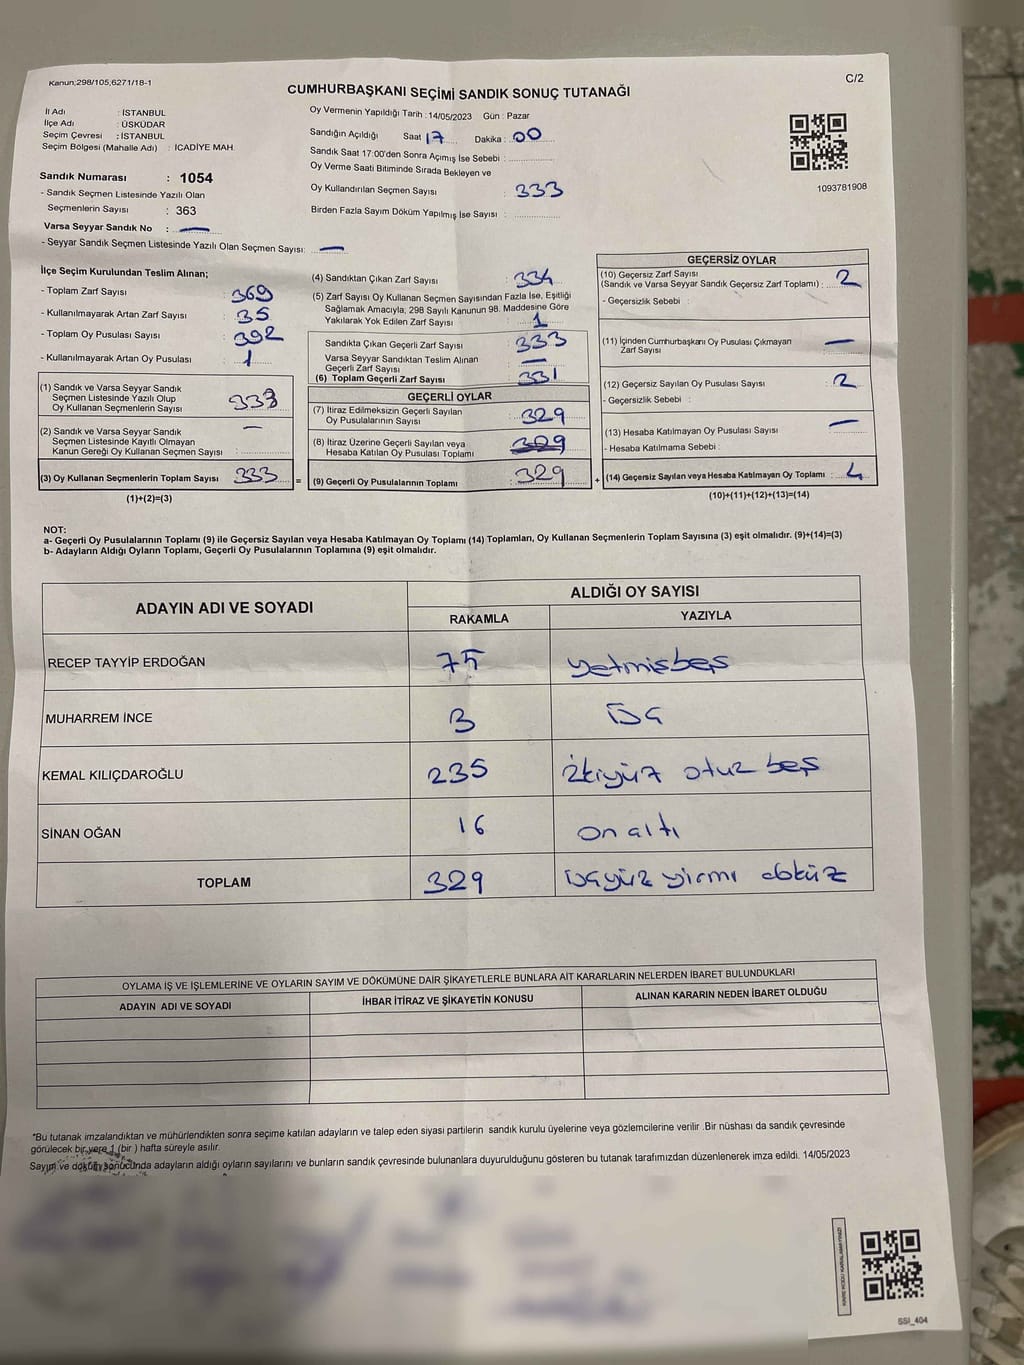 Kanun:298/105,6271/18-1
C/2
CUMHURBAŞKANI SEÇİMİ SANDIK SONUÇ TUTANAĞI
İl Adı : İSTANBUL
İlçe Adı : ÜSKÜDAR
Seçim Çevresi : İSTANBUL
Seçim Bölgesi (Mahalle Adı) : ICADİYE MAH.
Sandık Numarası : 1054
- Sandık Seçmen Listesinde Yazılı Olan
Seçmenlerin Sayısı : 363
Varsa Seyyar Sandık No : —
- Seyyar Sandık Seçmen Listesinde Yazılı Olan Seçmen Sayısı: —
Oy Vermenin Yapıldığı Tarih : 14/05/2023 Gün : Pazar
Sandığın Açıldığı Saat 17 Dakika : 00
Sandık Saat 17:00'den Sonra Açımış İse Sebebi :
Oy Verme Saati Bitiminde Sırada Bekleyen ve
Oy Kullandırılan Seçmen Sayısı : 333
Birden Fazla Sayım Döküm Yapılmış İse Sayısı :
1093781908
İlçe Seçim Kurulundan Teslim Alınan;
- Toplam Zarf Sayısı : 369
- Kullanılmayarak Artan Zarf Sayısı : 35
- Toplam Oy Pusulası Sayısı : 392
- Kullanılmayarak Artan Oy Pusulası : 1
(1) Sandık ve Varsa Seyyar Sandık
Seçmen Listesinde Yazılı Olup
Oy Kullanan Seçmenlerin Sayısı : 333
(2) Sandık ve Varsa Seyyar Sandık
Seçmen Listesinde Kayıtlı Olmayan
Kanun Gereği Oy Kullanan Seçmen Sayısı : —
(3) Oy Kullanan Seçmenlerin Toplam Sayısı 333
(1)+(2)=(3)
(4) Sandıktan Çıkan Zarf Sayısı : 334
(5) Zarf Sayısı Oy Kullanan Seçmen Sayısından Fazla İse, Eşitliği
Sağlamak Amacıyla, 298 Sayılı Kanunun 98. Maddesine Göre
Yakılarak Yok Edilen Zarf Sayısı : 1
Sandıkta Çıkan Geçerli Zarf Sayısı : 333
Varsa Seyyar Sandıktan Teslim Alınan
Geçerli Zarf Sayısı : —
(6) Toplam Geçerli Zarf Sayısı : 331
GEÇERLİ OYLAR
(7) İtiraz Edilmeksizin Geçerli Sayılan
Oy Pusulalarının Sayısı : 329
(8) İtiraz Üzerine Geçerli Sayılan veya
Hesaba Katılan Oy Pusulası Toplamı : 329
= (9) Geçerli Oy Pusulalarının Toplamı : 329 +
GEÇERSİZ OYLAR
(10) Geçersiz Zarf Sayısı
(Sandık ve Varsa Seyyar Sandık Geçersiz Zarf Toplamı) : 2
- Geçersizlik Sebebi :
(11) İçinden Cumhurbaşkanı Oy Pusulası Çıkmayan
Zarf Sayısı —
(12) Geçersiz Sayılan Oy Pusulası Sayısı : 2
- Geçersizlik Sebebi :
(13) Hesaba Katılmayan Oy Pusulası Sayısı —
- Hesaba Katılmama Sebebi :
(14) Geçersiz Sayılan veya Hesaba Katılmayan Oy Toplamı : 4
(10)+(11)+(12)+(13)=(14)
NOT:
a- Geçerli Oy Pusulalarının Toplamı (9) ile Geçersiz Sayılan veya Hesaba Katılmayan Oy Toplamı (14) Toplamları, Oy Kullanan Seçmenlerin Toplam Sayısına (3) eşit olmalıdır. (9)+(14)=(3)
b- Adayların Aldığı Oyların Toplamı, Geçerli Oy Pusulalarının Toplamına (9) eşit olmalıdır.
ADAYIN ADI VE SOYADI ALDIĞI OY SAYISI
RAKAMLA YAZIYLA
RECEP TAYYİP ERDOĞAN 75 yetmişbeş
MUHARREM İNCE 3 üç
KEMAL KILIÇDAROĞLU 235 ikiyüz otuz beş
SİNAN OĞAN 16 on altı
TOPLAM 329 üçyüz yirmi dokuz
OYLAMA İŞ VE İŞLEMLERİNE VE OYLARIN SAYIM VE DÖKÜMÜNE DAİR ŞİKAYETLERLE BUNLARA AİT KARARLARIN NELERDEN İBARET BULUNDUKLARI
ADAYIN ADI VE SOYADI İHBAR İTİRAZ VE ŞİKAYETİN KONUSU ALINAN KARARIN NEDEN İBARET OLDUĞU
*Bu tutanak imzalandıktan ve mühürlendikten sonra seçime katılan adayların ve talep eden siyasi partilerin sandık kurulu üyelerine veya gözlemcilerine verilir .Bir nüshası da sandık çevresinde
görülecek bir yere 1 (bir ) hafta süreyle asılır.
Sayım ve döküm sonucunda adayların aldığı oyların sayılarını ve bunların sandık çevresinde bulunanlara duyurulduğunu gösteren bu tutanak tarafımızdan düzenlenerek imza edildi. 14/05/2023
SSI_404